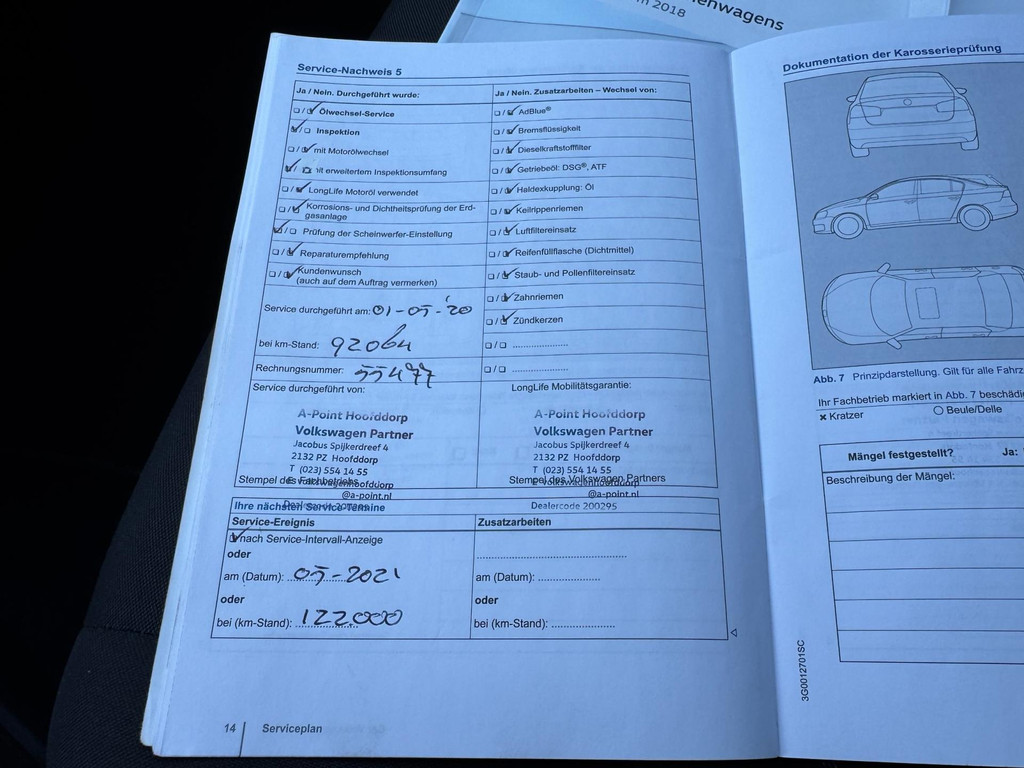 enwagens
2018
Service-Nachweis 5
Ja / Nein. Durchgeführt wurde:
Ölwechsel-Service
Inspektion
mit Motorölwechsel
mit erweitertem Inspektionsumfang
LongLife Motoröl verwendet
Korrosions- und Dichtheitsprüfung der Erd-
gasanlage
Prüfung der Scheinwerfer-Einstellung
Reparaturempfehlung
Kundenwunsch
(auch auf dem Auftrag vermerken)
Service durchgeführt am: 01-05-'20
bei km-Stand: 92064
Rechnungsnummer: 55477
Service durchgeführt von:
A-Point Hoofddorp
Volkswagen Partner
Jacobus Spijkerdreef 4
2132 PZ Hoofddorp
T (023) 554 14 55
Stempel des Fachbetriebs
volkswagenhoofddorp
@a-point.nl
Ja / Nein. Zusatzarbeiten – Wechsel von:
AdBlue®
Bremsflüssigkeit
Dieselkraftstofffilter
Getriebeöl: DSG®, ATF
Haldexkupplung: Öl
Keilrippenriemen
Luftfiltereinsatz
Reifenfüllflasche (Dichtmittel)
Staub- und Pollenfiltereinsatz
Zahnriemen
Zündkerzen
LongLife Mobilitätsgarantie:
A-Point Hoofddorp
Volkswagen Partner
Jacobus Spijkerdreef 4
2132 PZ Hoofddorp
T (023) 554 14 55
Stempel des Volkswagen Partners
volkswagenhoofddorp
@a-point.nl
Dealercode 200295
Ihre nächsten Service-Termine
Service-Ereignis
nach Service-Intervall-Anzeige
oder
am (Datum): 05-2021
oder
bei (km-Stand): 122000
Zusatzarbeiten
am (Datum):
oder
bei (km-Stand):
14 Serviceplan
Dokumentation der Karosserieprüfung
Abb. 7 Prinzipdarstellung. Gilt für alle Fahrz
Ihr Fachbetrieb markiert in Abb. 7 beschädi
× Kratzer ○ Beule/Delle
Mängel festgestellt? Ja:
Beschreibung der Mängel:
3G0012701SC